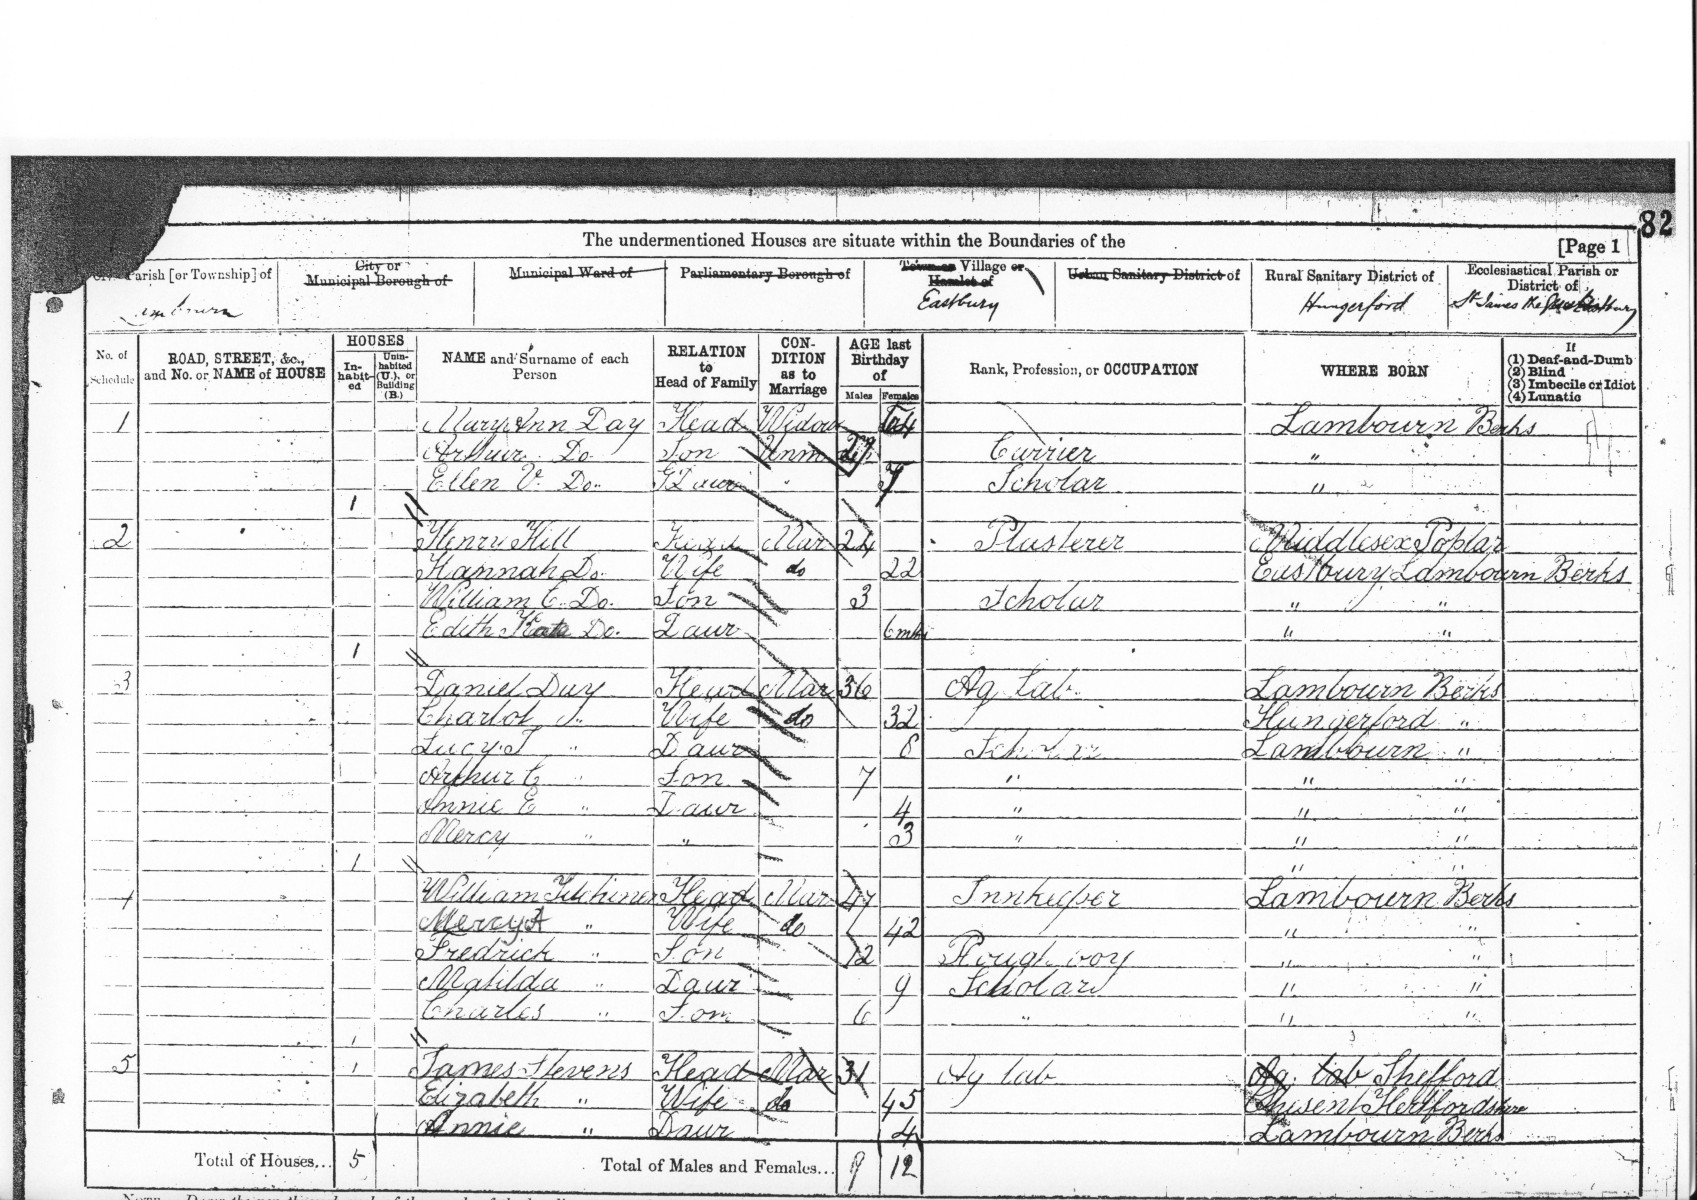 82
The undermentioned Houses are situate within the Boundaries of the
[Page 1
Parish [or Township] of
City or Municipal Borough of
Municipal Ward of
Parliamentary Borough of
Town or Village or Hamlet of
Urban Sanitary District of
Rural Sanitary District of
Ecclesiastical Parish or District of
Eastbury
Hungerford
St James the Eastbury
No. of Schedule
ROAD, STREET, &c., and No. or NAME of HOUSE
HOUSES
In-habit-ed
Unin-habited (U.), or Building (B.)
NAME and Surname of each Person
RELATION to Head of Family
CON-DITION as to Marriage
AGE last Birthday of
Males
Females
Rank, Profession, or OCCUPATION
WHERE BORN
If
(1) Deaf-and-Dumb
(2) Blind
(3) Imbecile or Idiot
(4) Lunatic
1 Mary Ann Day Head Widow 64 Lambourn Berks
Arthur Do. Son Unm Carrier "
Ellen V. Do.. GDaur " 7 Scholar "
1
2 Henry Hill Head Mar 24 Plasterer Middlesex Poplar
Hannah Do. Wife do 22 Eastbury Lambourn Berks
William C. Do. Son 3 Scholar " "
Edith Kate Do. Daur 6 " "
1
3 Daniel Day Head Mar 36 Ag Lab. Lambourn Berks
Charlot Wife do 32 Hungerford "
Lucy J " Daur 8 Scholar Lambourn "
Arthur C " Son 7 " " "
Annie E " Daur 4 " " "
Mercy " " 3 " " "
1 " "
4 William Kitchiner Head Mar 47 Innkeeper Lambourn Berks
Mercy A " Wife do 42 " "
Fredrick " Son 12 Plough boy " "
Matilda " Daur 9 Scholar " "
Charles " Son 6 " " "
1
5 1 James Stevens Head Mar 31 Ag lab Ag lab Shefford
Elizabeth " Wife do 45 Hertfordshire
Annie " Daur 4 Lambourn Berks
Total of Houses... 5 Total of Males and Females... 9 12